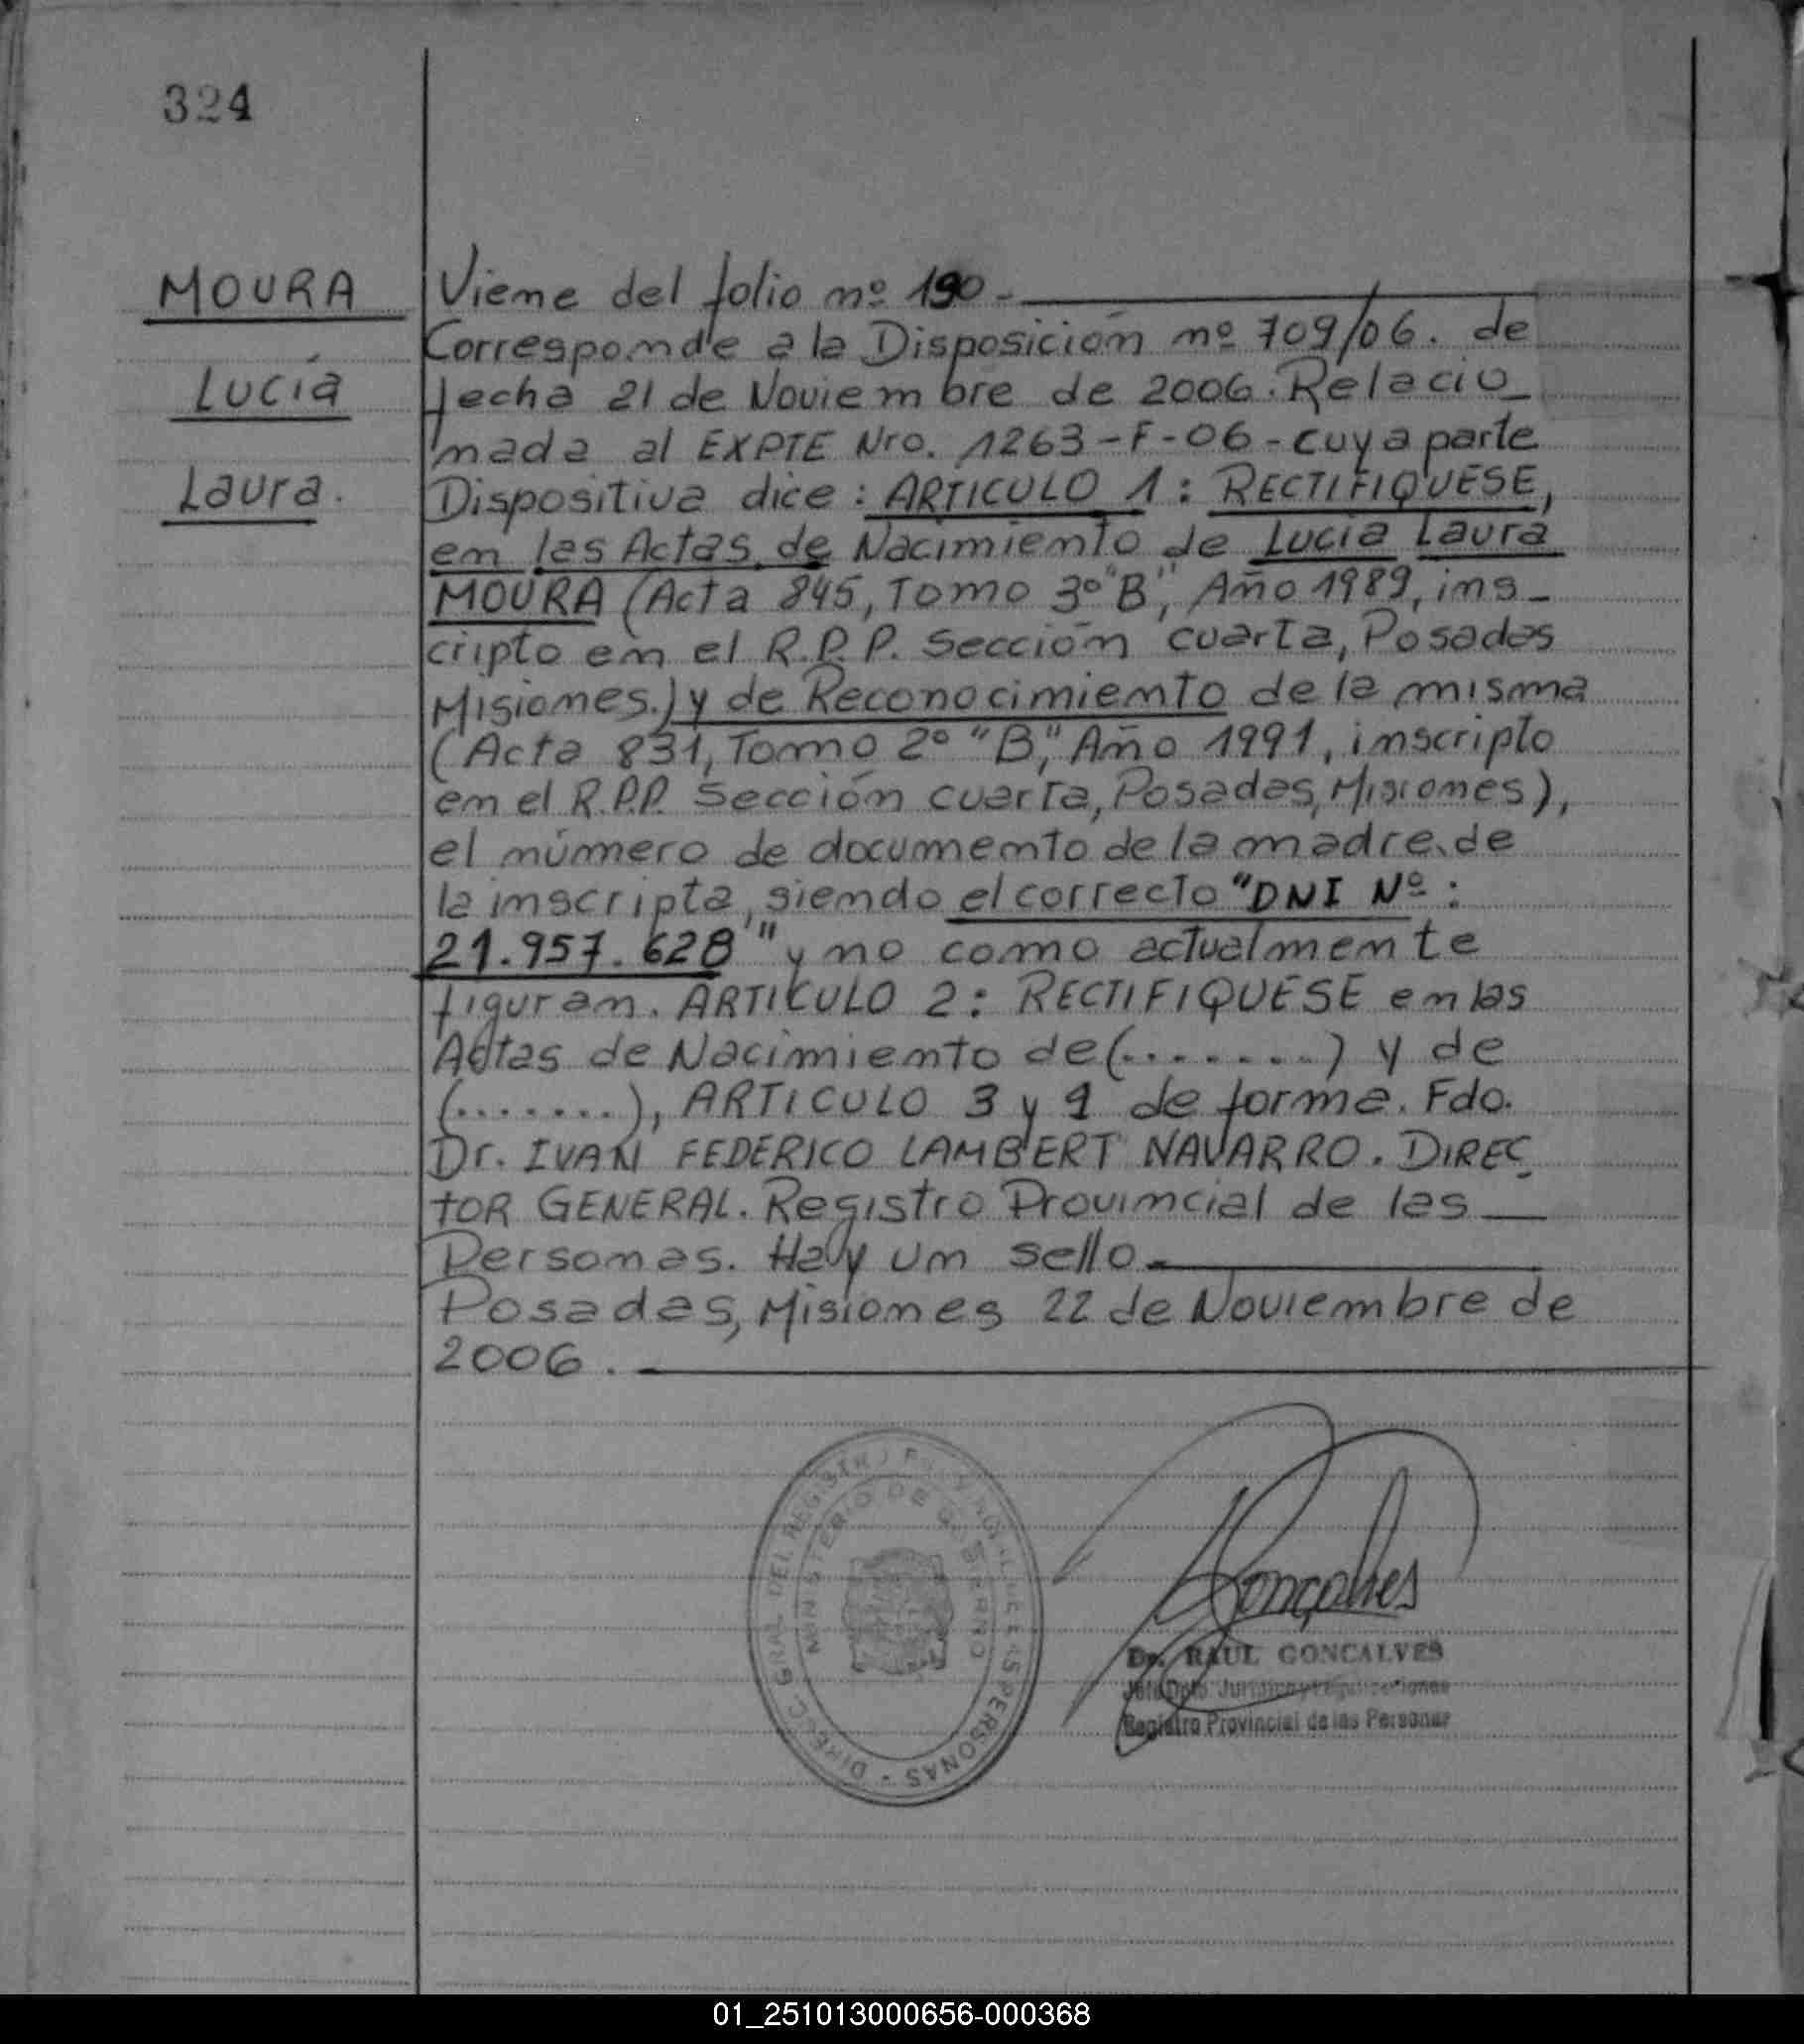 324
MOURA
Lucía
Laura.
Viene del folio nº 190.
Corresponde a la Disposición nº 709/06. de
fecha 21 de Noviembre de 2006. Relacio_
nada al EXPTE Nro. 1263-F-06-cuya parte
Dispositiva dice: ARTICULO 1: RECTIFIQUESE,
en las Actas de Nacimiento de Lucia Laura
MOURA (Acta 845, Tomo 3º"B", Año 1989, ins_
cripto en el R.P.P. Sección cuarta, Posadas
Misiones.) y de Reconocimiento de la misma
(Acta 831, Tomo 2º "B", Año 1991, inscripto
en el R.P.P. Sección cuarta, Posadas, Misiones),
el número de documento de la madre de
la inscripta, siendo el correcto "DNI Nº:
21.957.628" y no como actualmente
figuran. ARTICULO 2: RECTIFIQUESE en las
Actas de Nacimiento de (........) y de
(.......), ARTICULO 3 y 9 de forma. Fdo.
Dr. IVAN FEDERICO LAMBERT NAVARRO. DIREC_
TOR GENERAL. Registro Provincial de las
Personas. Hay un sello.
Posadas, Misiones 22 de Noviembre de
2006.
DIRECC. GRAL DEL REGISTRO PROVINCIAL DE LAS PERSONAS -
MINISTERIO DE GOBIERNO
Gonçalves
Dr. RAUL GONCALVES
Registro Provincial de las Personas
01_251013000656-000368